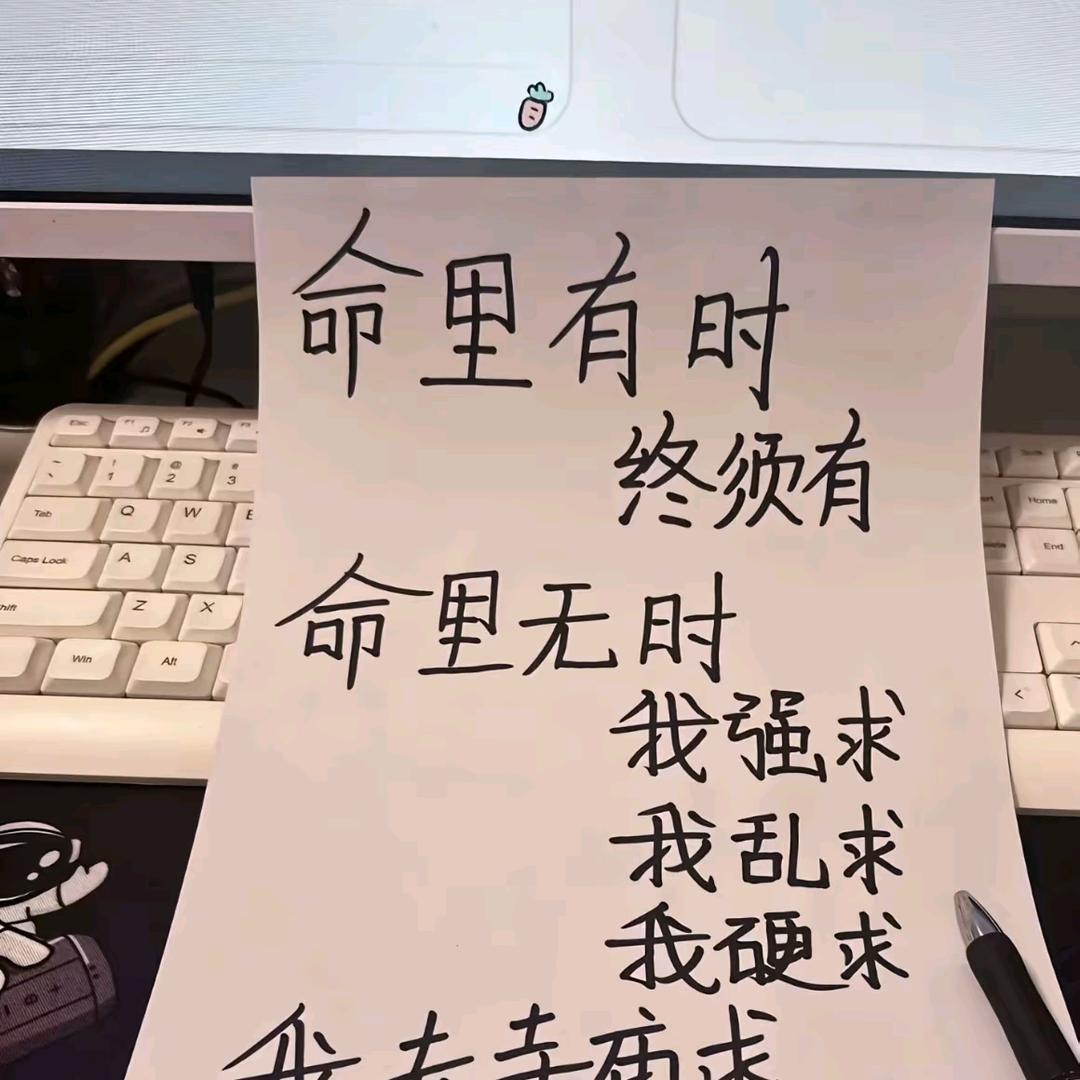 命里有时
终须有
命里无时
我强求
我乱求
我硬求
我去寺庙求
Esc F1 F2 F3
~ ! 1 @ 2 # 3
Tab Q W E
Caps Lock A S
Shift Z X
Win Alt
Home
End